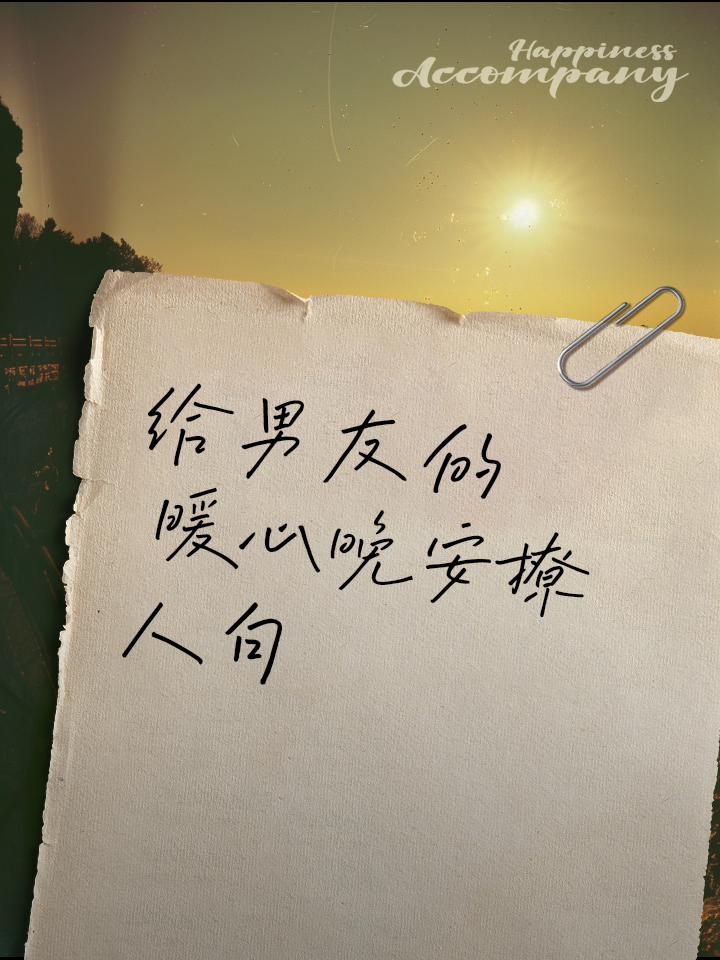 Happiness
Accompany
给男友的
暖心晚安撩
人句